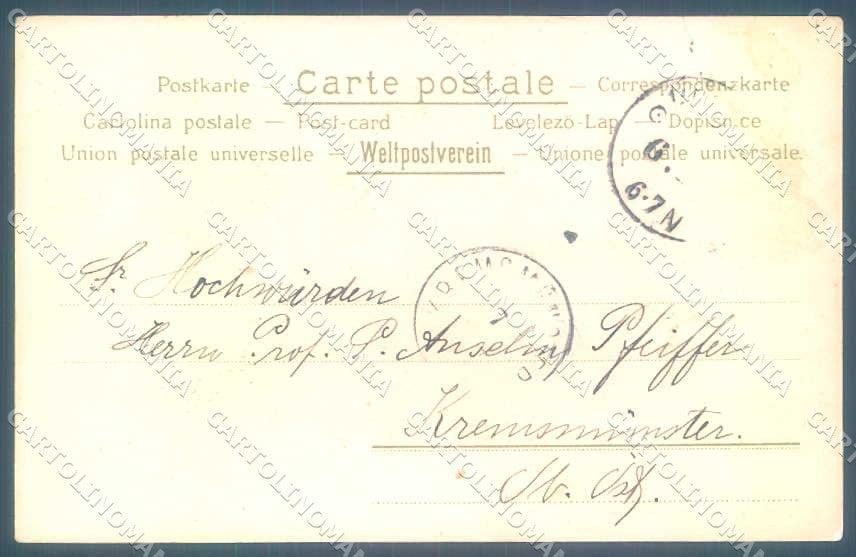 Postkarte — Carte postale — Correspondenzkarte
Cartolina postale — Post-card Levelezö-Lap — Dopisnice
Union postale universelle — Weltpostverein — Unione postale universale.
6.
6-7N
KREMSMÜNSTER
7
Sr Hochwürden
Herrn Prof. P. Anselm Pfeiffer
Kremsmünster.
Ob. Öst.
CARTOLINOMANIA